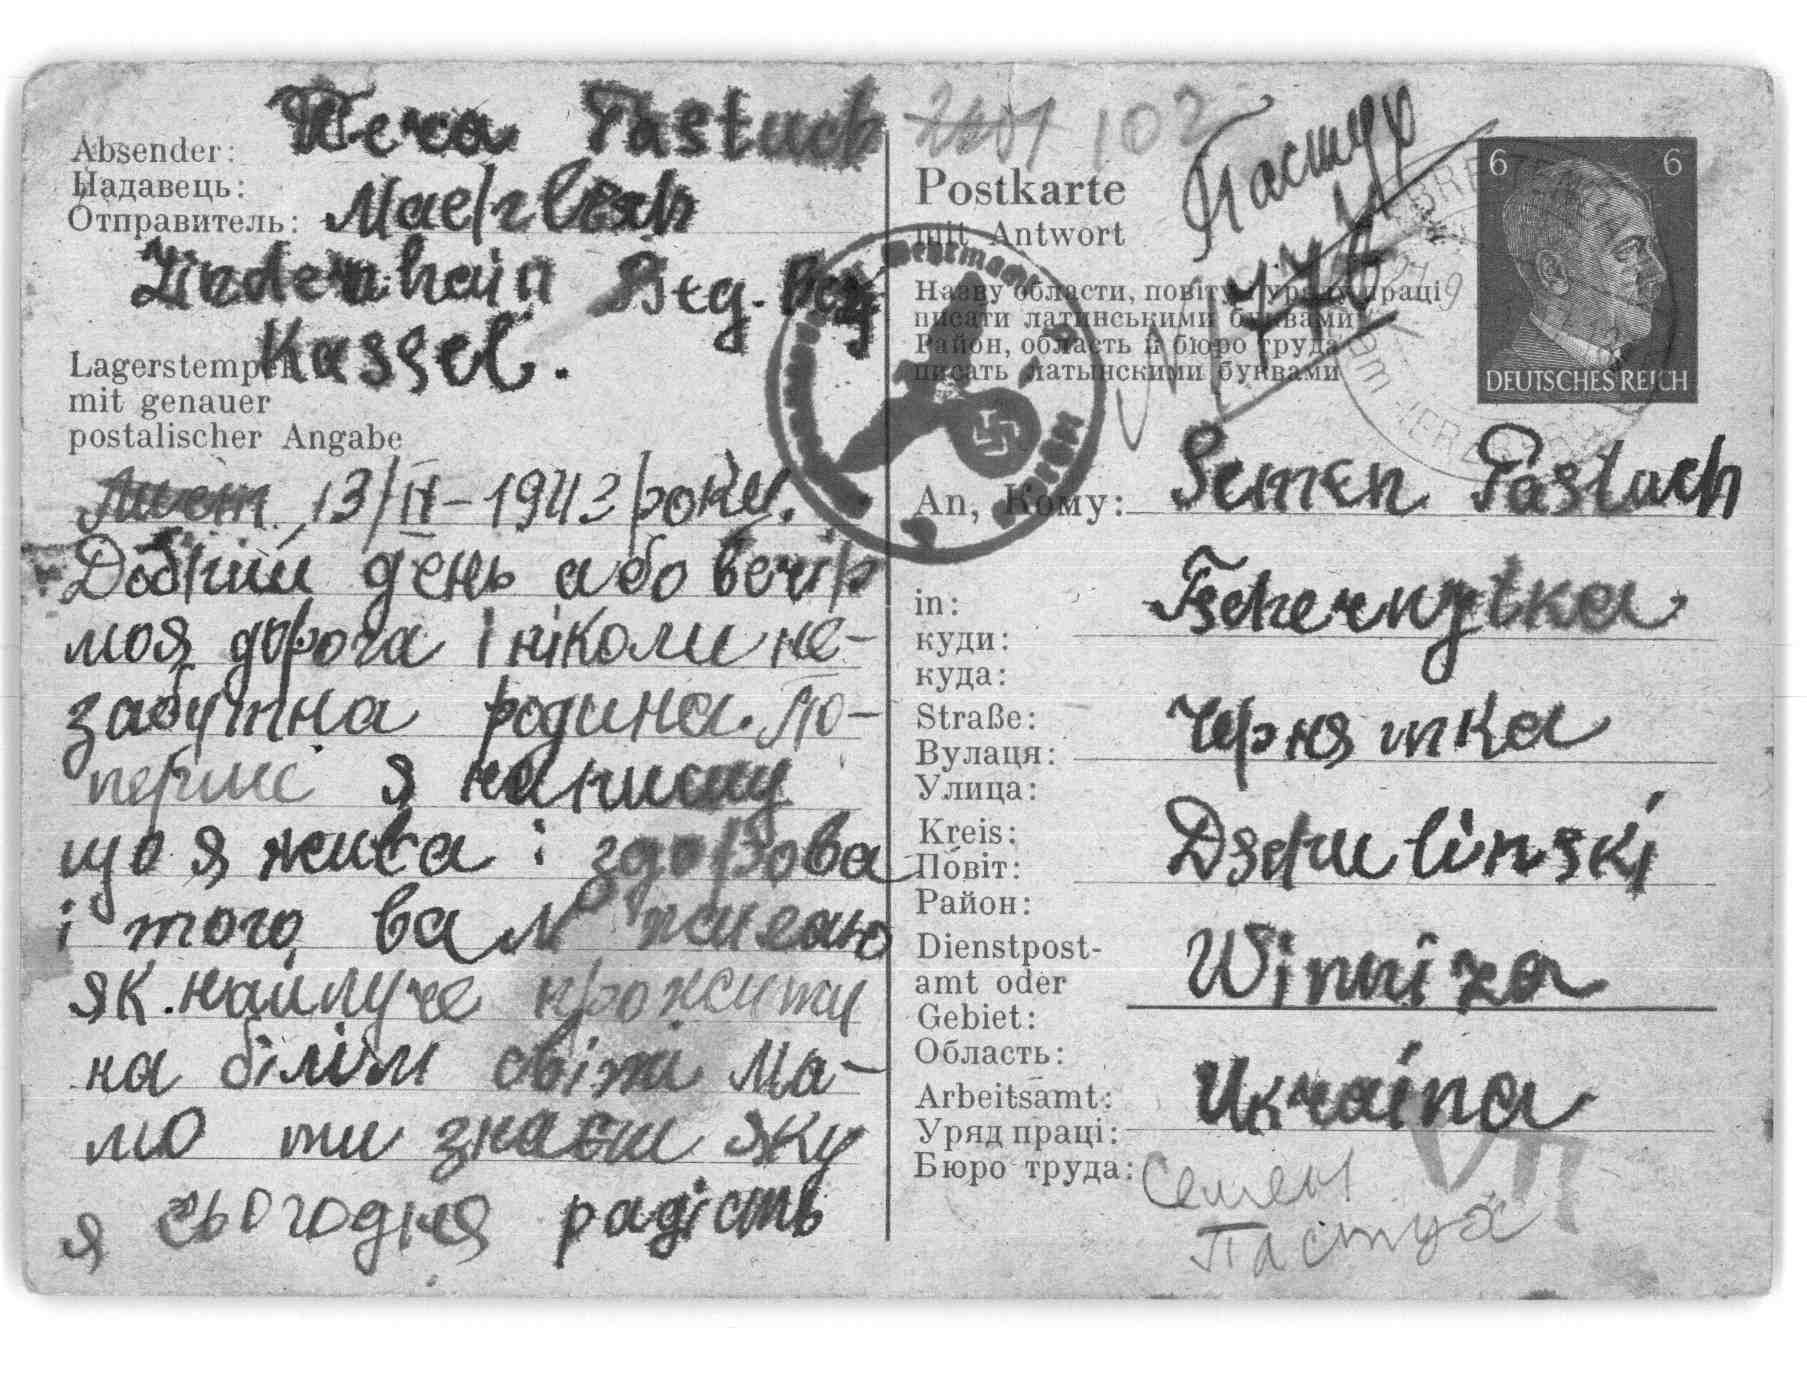 Wera Pastuch
Absender:
Надавець:
Отправитель:
Lindenhain
Kassel.
Lagerstempel
mit genauer
postalischer Angabe
Лист 13/II-1943 року.
Добрий день або вечір
моя дорога і ніколи не-
забутна родина. По-
перше я напишу
що я жива і здорова
і того вам жилаю
як найлуче прожити
на білім світі Ма-
мо ти знаєш яку
я сьогодня радість
102
Пастух
Postkarte
mit Antwort
Назву области, повіту й уряду праці
писати латинськими буквами
Район, область и бюро труда
писать латынскими буквами
6 6
DEUTSCHES REICH
An, Кому: Semen Pastuch
in:
куди:
куда:
Tschernjatka
Straße:
Вулаця:
Улица:
Чернятка
Kreis:
Повіт:
Район:
Dschulinski
Dienstpost-
amt oder
Gebiet:
Область:
Winniza
Arbeitsamt:
Уряд праці:
Бюро труда:
Ukraina
Семен
Пастух